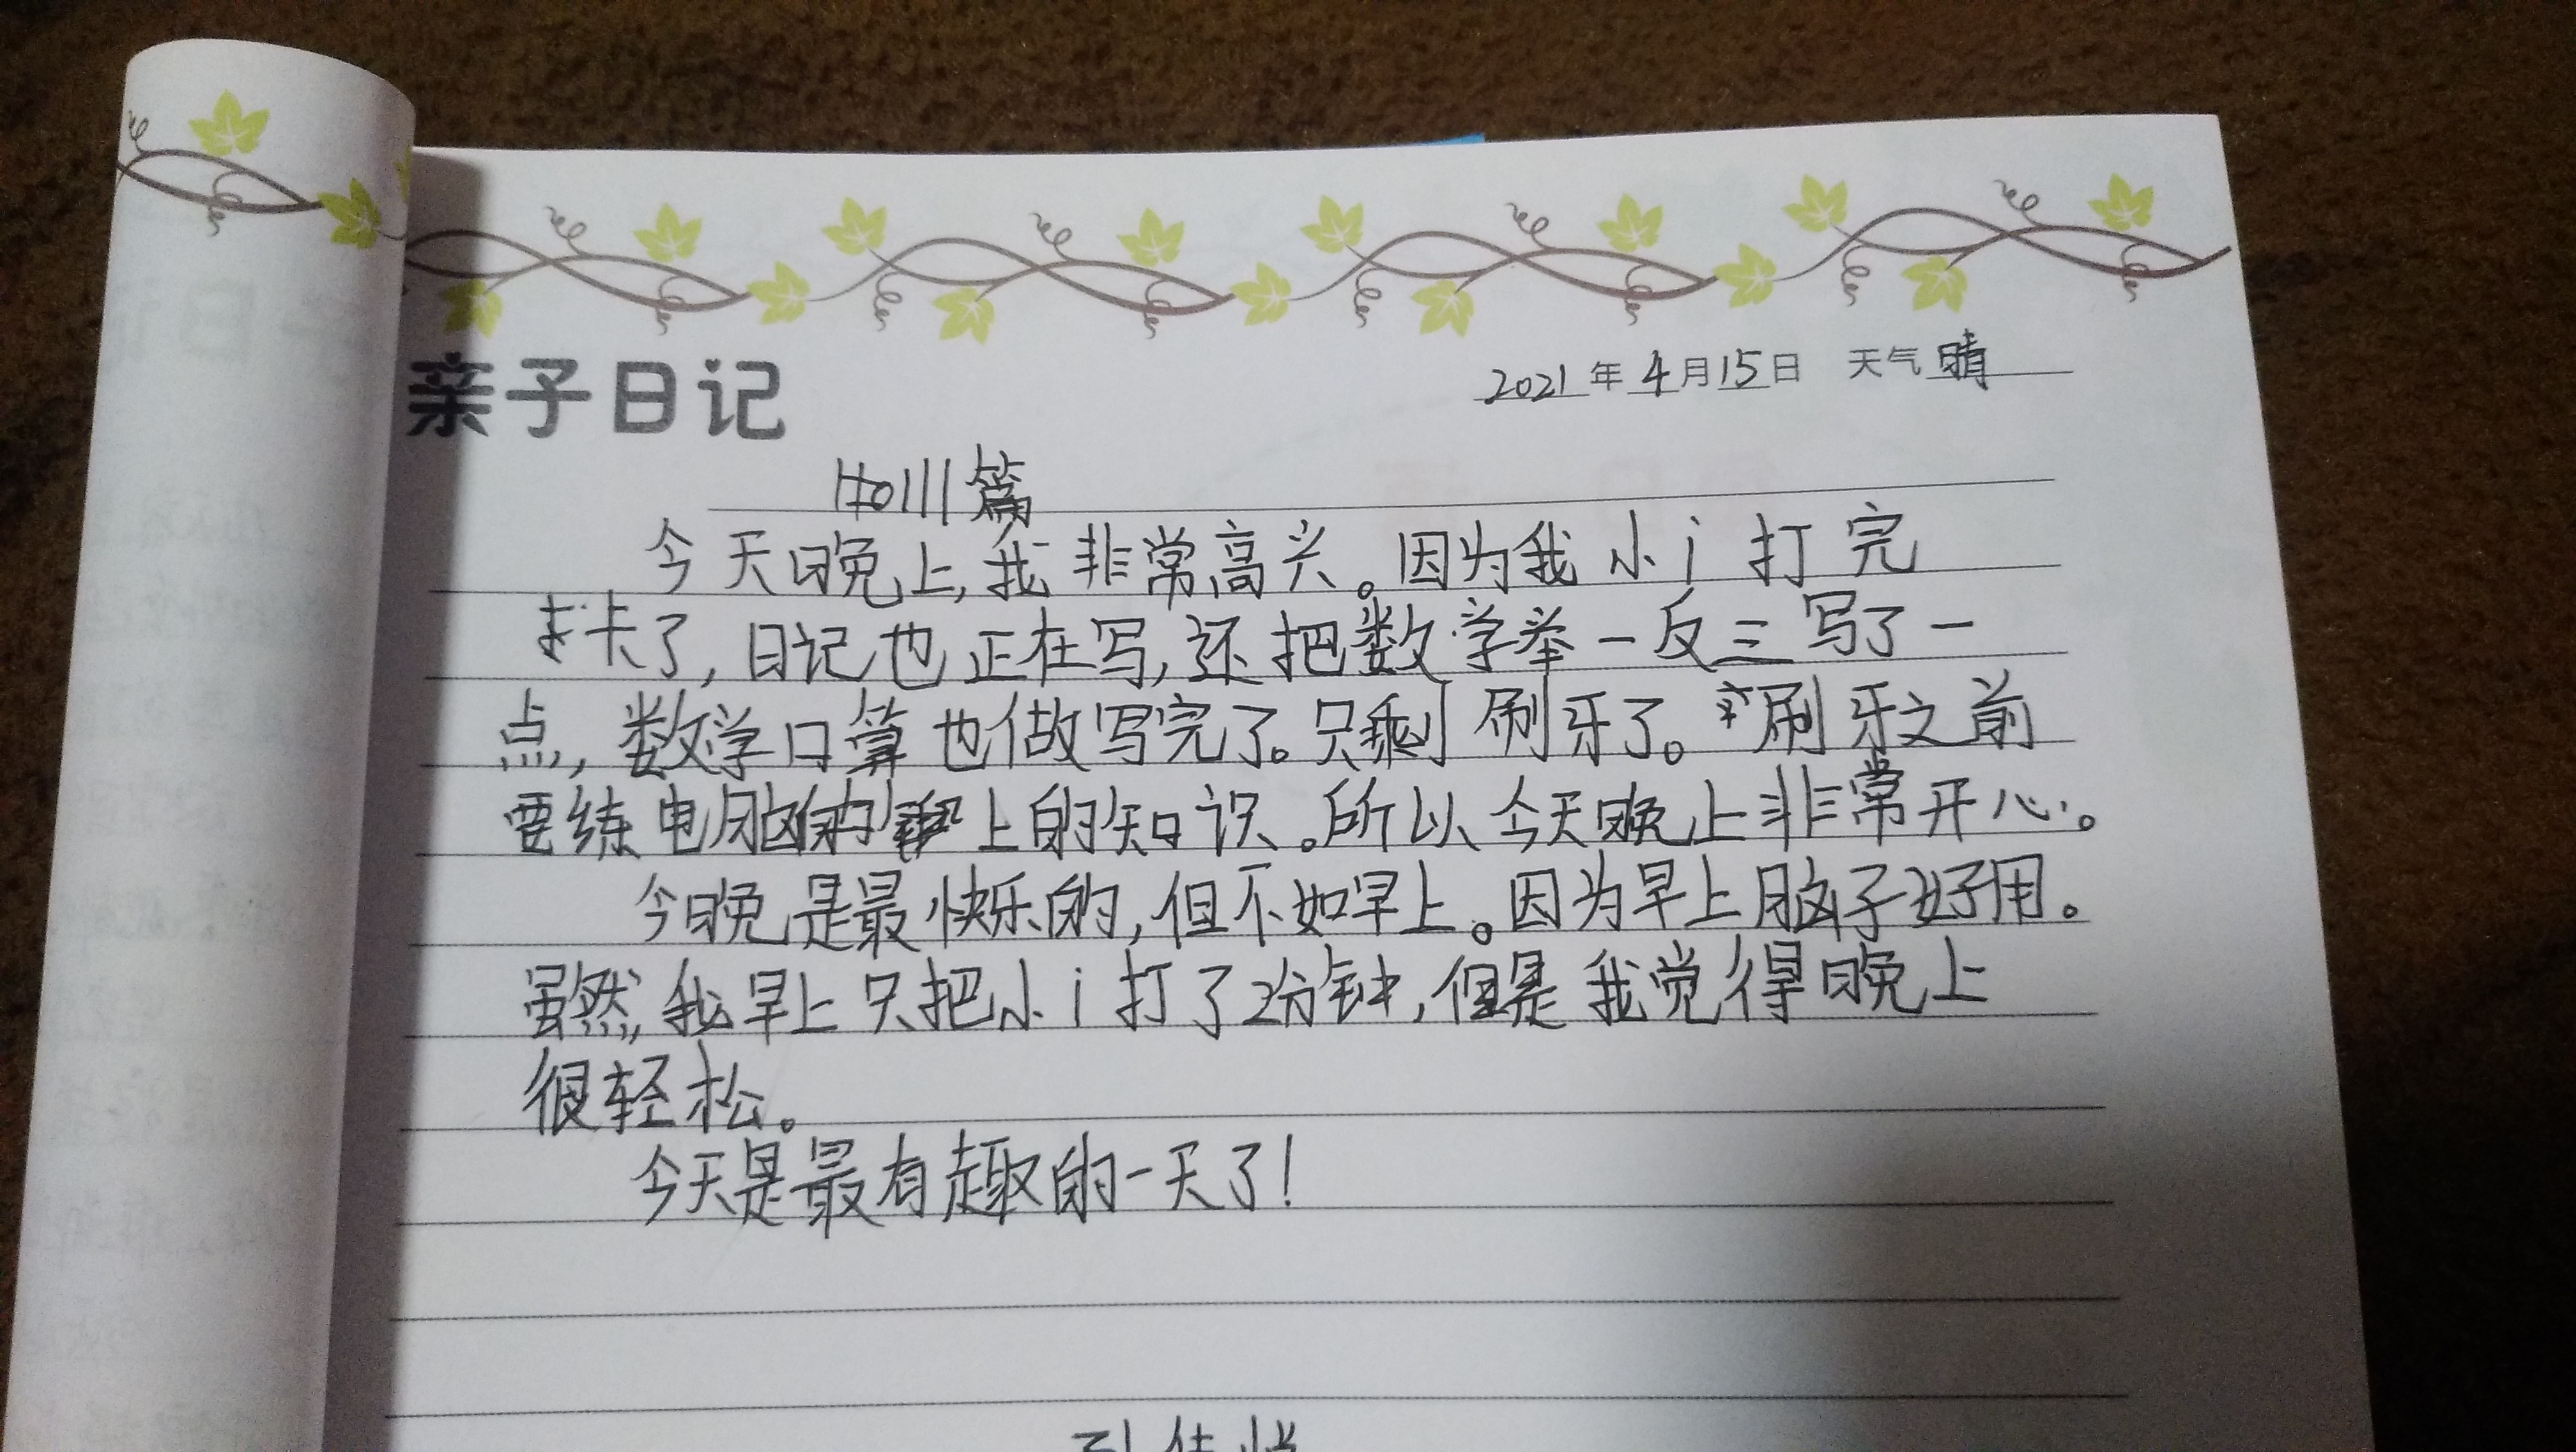 亲子日记
2021年4月15日 天气晴
篇
今天晚上,我非常高兴。因为我小i打完
卡了,日记也正在写,还把数学举一反三写了一
点,数学口算也做写完了。只剩刷牙了。刷牙之前
要练电脑的上的知识。所以今天晚上非常开心。
今晚是最快乐的,但不如早上。因为早上脑子好用。
虽然,我早上只把小i打了2分钟,但是我觉得晚上
很轻松。
今天是最有趣的一天了!